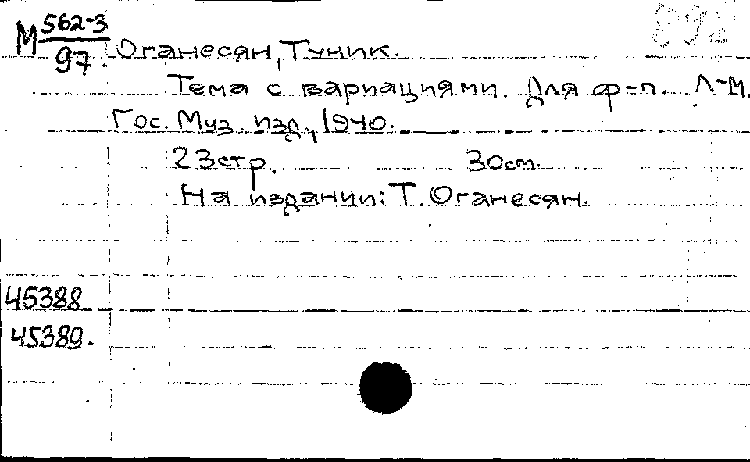 М 562-3
97. Оганесян, Туник.
Тема с вариациями. Для ф-п. Л-М.
Гос. Муз. изд., 1940.
23стр. 30см.
На издании: Т. Оганесян.
45388
45389.